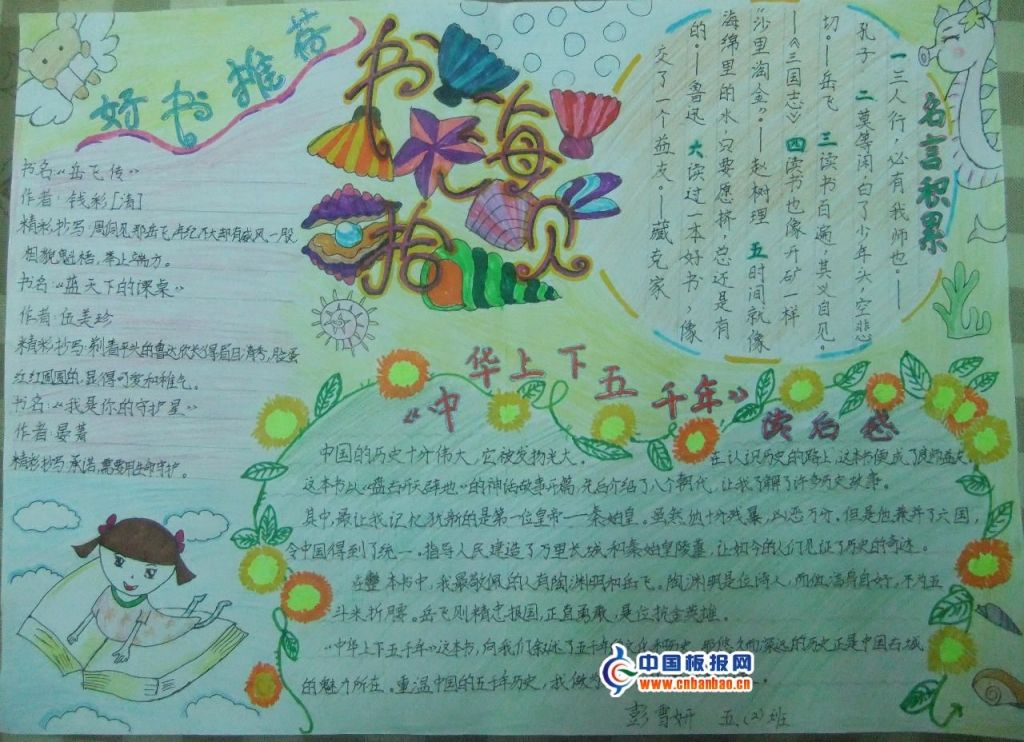 好书推荐
书名:《岳飞传》
作者:钱彩[清]
精彩抄写:周侗见那岳飞年纪不大却有威风一般
相貌魁梧,举止端方。
书名:《蓝天下的课桌》
作者:伍美珍
精彩抄写:剃着平头的鲁达欣长得眉目清秀,脸蛋
红红圆圆的,显得可爱和稚气。
书名:《我是你的守护星》
作者:晏菁
精彩抄写:承诺,需要用生命守护。
书海拾贝
名言积累
一三人行,必有我师也。——
孔子 二莫等闲,白了少年头,空悲
切。——岳飞 三读书百遍,其义自见。
——《三国志》 四读书也像开矿一样
“沙里淘金”。——赵树理 五时间就像
海绵里的水,只要愿挤,总还是有
的。——鲁迅 六读过一本好书,像
交了一个益友。——藏克家
《中华上下五千年》
读后感
中国的历史十分伟大,它被发扬光大。 在认识历史的路上,这本书便成了良师益友
这本书以“盘古开天辟地”的神话故事开篇,先后介绍了八个朝代,让我了解了许多历史故事。
其中,最让我记忆犹新的是第一位皇帝——秦始皇。虽然他十分残暴,凶恶万分。但是他兼并了六国,
令中国得到了统一。指导人民建造了万里长城和秦始皇陵墓,让如今的人们见证了历史的奇迹。
在整本书中,我最敬佩的人有陶渊明和岳飞。陶渊明是位诗人,而他洁身自好,不为五
斗米折腰。岳飞则精忠报国,正直勇敢,是位抗金英雄。
《中华上下五千年》这本书,向我们叙述了五千年的文化和历史,那悠久而深远的历史正是中国古域
的魅力所在。重温中国的五千年历史,我做为
中国板报网
www.cnbanbao.cn
彭雪妍 五(2)班